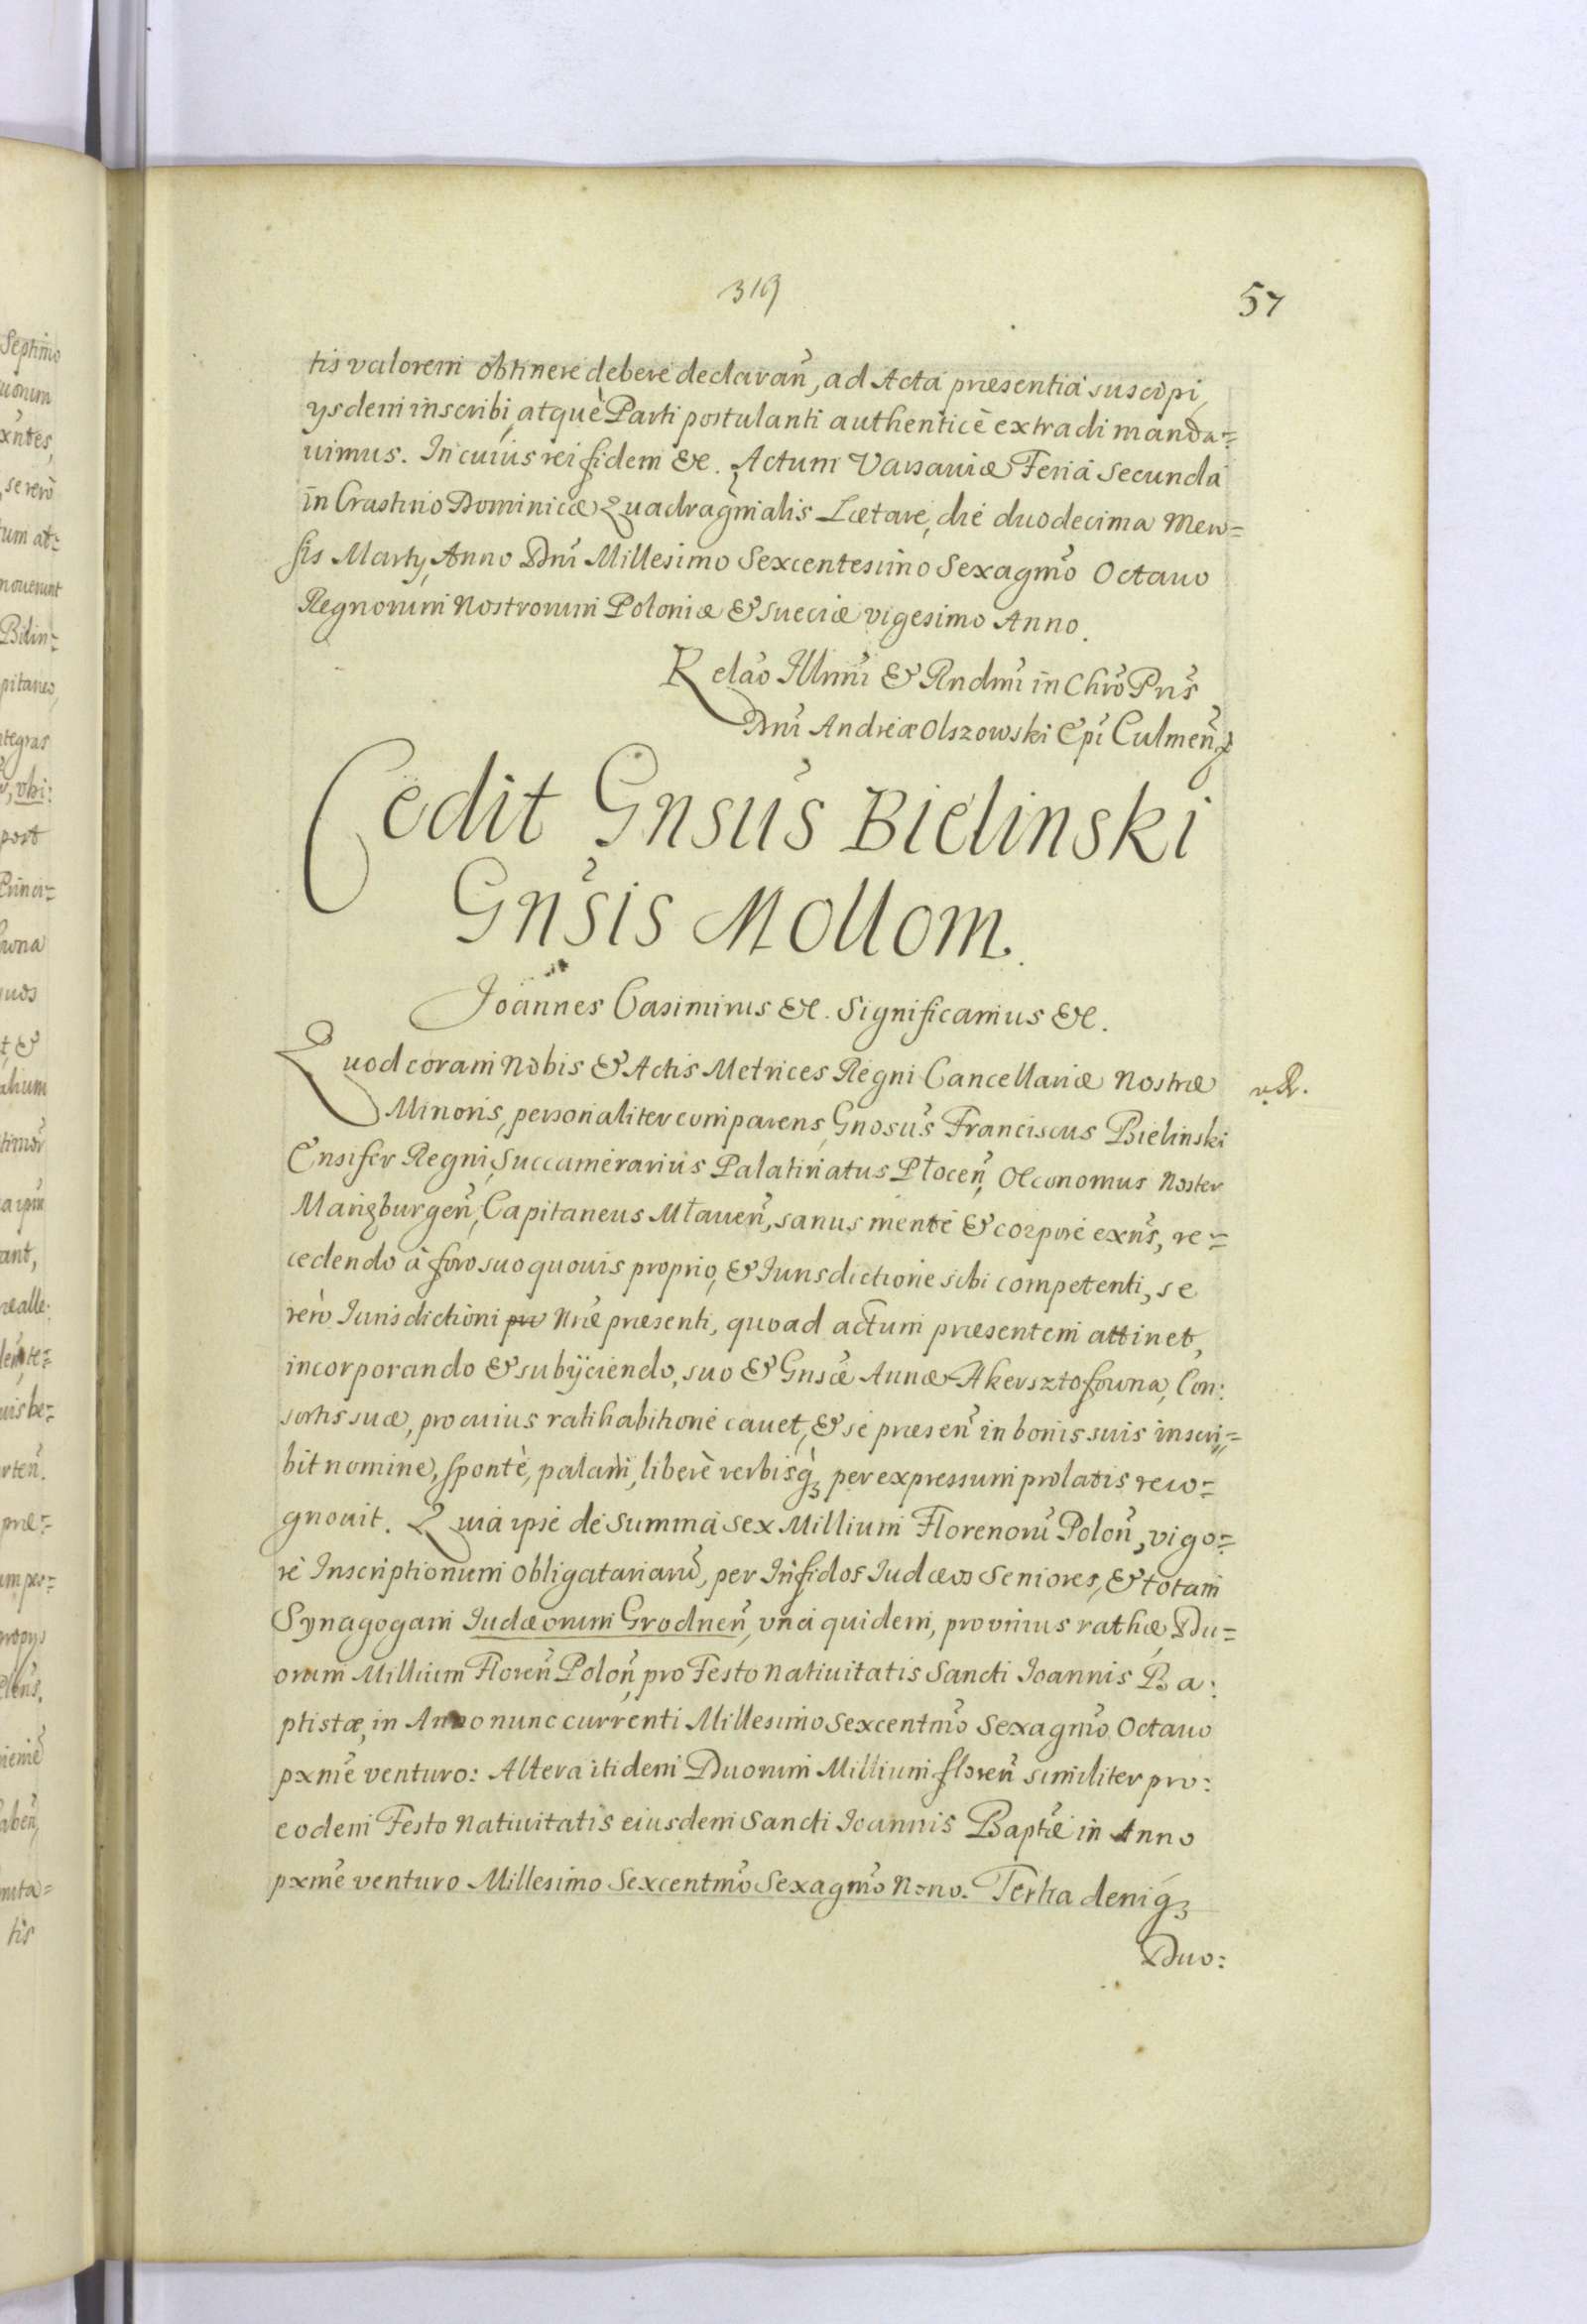 319
57
tis valorem obtinere debere declarañ, ad Acta præsentia suscipi,
ijsdem inscribi, atquè Parti postulanti authenticè extradi manda=
uimus. In cuius rei fidem &c. Actum Varsauiæ Feriâ Secundâ
in Crastino Dominicæ Quadragnialis Lætare, die duodecima Men=
sis Martij, Anno Dni Millesimo Sexcentesimo Sexagmo Octauo
Regnorum Nostrorum Poloniæ & Sueciæ vigesimo Anno.
Relao Illmi & Rndmi in Chro Pris
Dni Andreæ Olszowski Epi Culmeñ
Cedit Gnsus Bielinski
Gnsis Mollom.
Joannes Casimirus &c. Significamus &c.
Quod coram Nobis & Actis Metrices Regni Cancellariæ Nostræ
Minoris, personaliter comparens, Gnosus Franciscus Bielinski
Ensifer Regni, Succamerarius Palatinatus Płoceñ, Oeconomus Noster
Margburgeñ, Capitaneus Młaueñ, sanus mente & corpore exñs, re=
cedendo à foro suo quouis proprio, & Iurisdictione sibi competenti, se
verò Iurisdictioni præ Nræ præsenti, quoad actum præsentem attinet,
incorporando & subijciendo, suo & Gnsæ Annæ Akersztofowna, Con:
sortis suæ, pro cuius ratihabitione cauet, & se præseñ in bonis suis inscri=
bit nomine, spontè, palam, liberè verbisq; per expressum prolatis reco=
gnouit. Quia ipse de summa sex Millium Florenorũ Poloñ, vigo=
re Inscriptionum obligatoriarũ, per Infidos Iudæos Seniores, & totam
Synagogam Iudæorum Grodneñ, vnâ quidem, pro vnius rathæ, Du=
orum Millium Floreñ Poloñ, pro Festo Natiuitatis Sancti Ioannis Ba:
ptistæ, in Anno nunc currenti Millesimo Sexcentmo Sexagmo Octauo
pxme venturo: Altera itidem Duorum Millium floreñ similiter pro:
eodem Festo Natiuitatis eiusdem Sancti Ioannis Baptæ in Anno
pxme venturo Millesimo Sexcentmo Sexagmo Nono. Tertia deniq;
Duo: